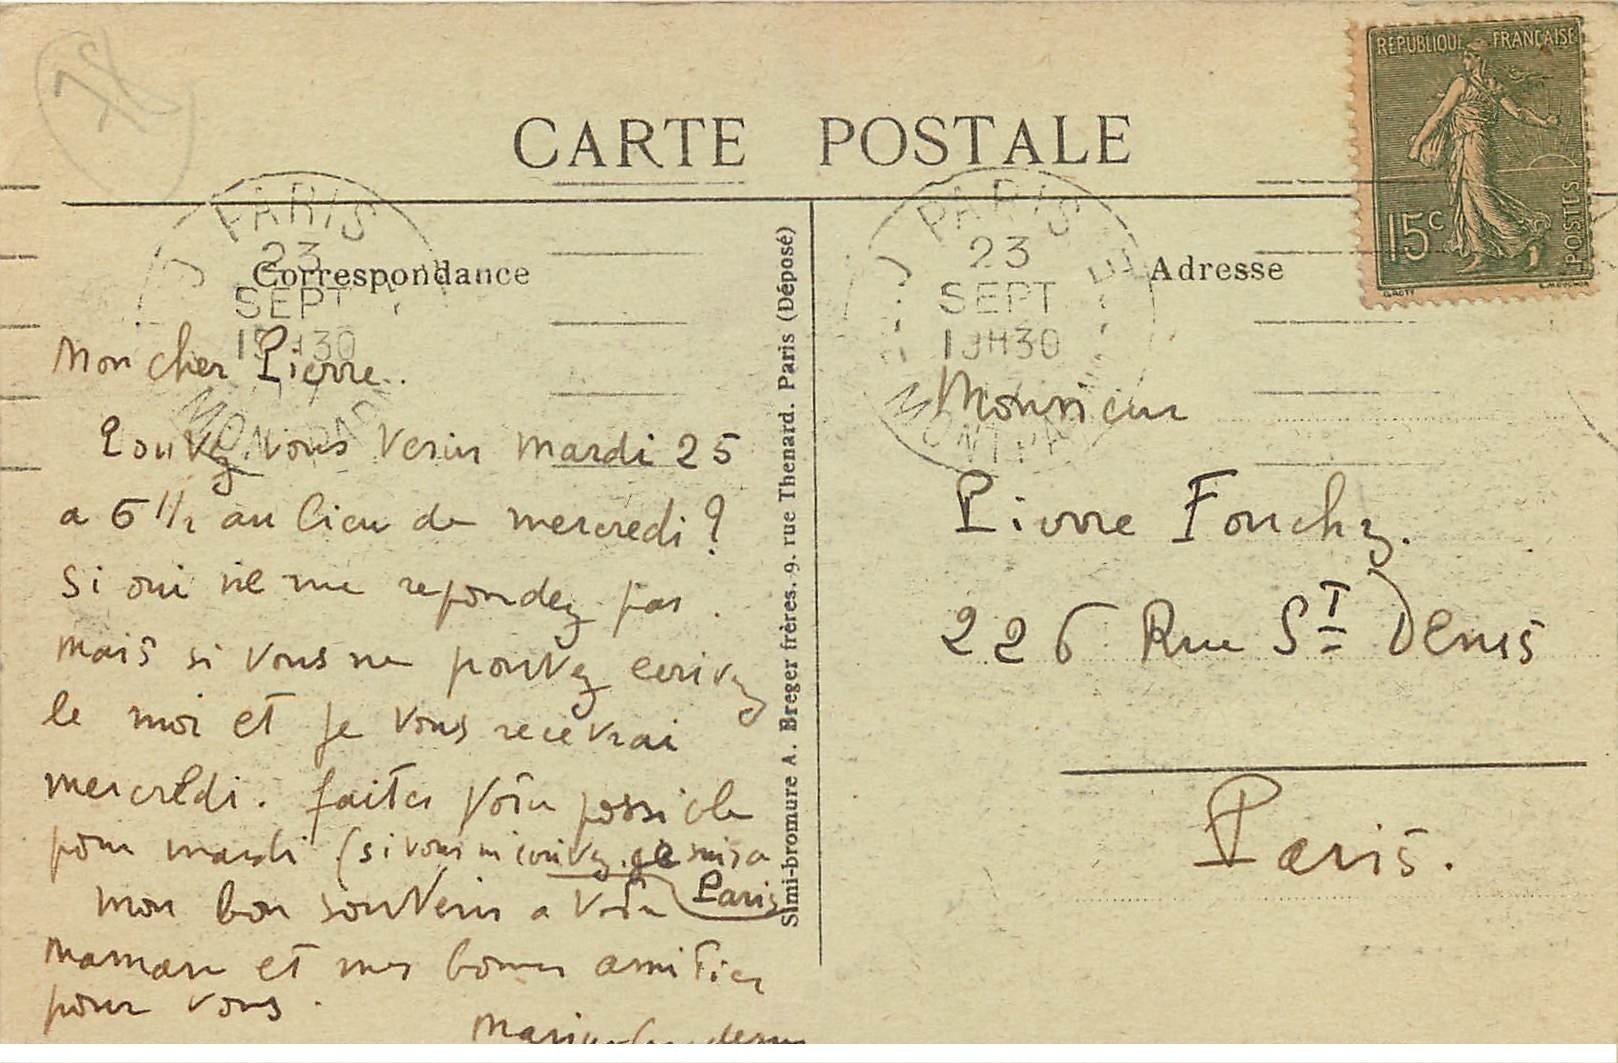 CARTE POSTALE
Correspondance
Mon cher Pierre.
Pouvez vous venir mardi 25
a 6 1/2 au lieu de mercredi ?
Si oui ne me repondez pas.
mais si vous ne pouvez ecrivez
le moi et je vous recevrai
mercredi. faites votre possible
pour mardi (si vous m'ecrivez je suis a
Paris
mon bon souvenir a votre
maman et mes bonnes amities
pour vous.
Simi-bromure A. Breger frères. 9. rue Thenard. Paris (Déposé)
REPUBLIQUE FRANÇAISE
15c
POSTES
PARIS
23
SEPT
19H30
PARIS
23
SEPT
19H30
Adresse
Monsieur
Pierre Fouchy.
226 Rue St Denis
Paris.